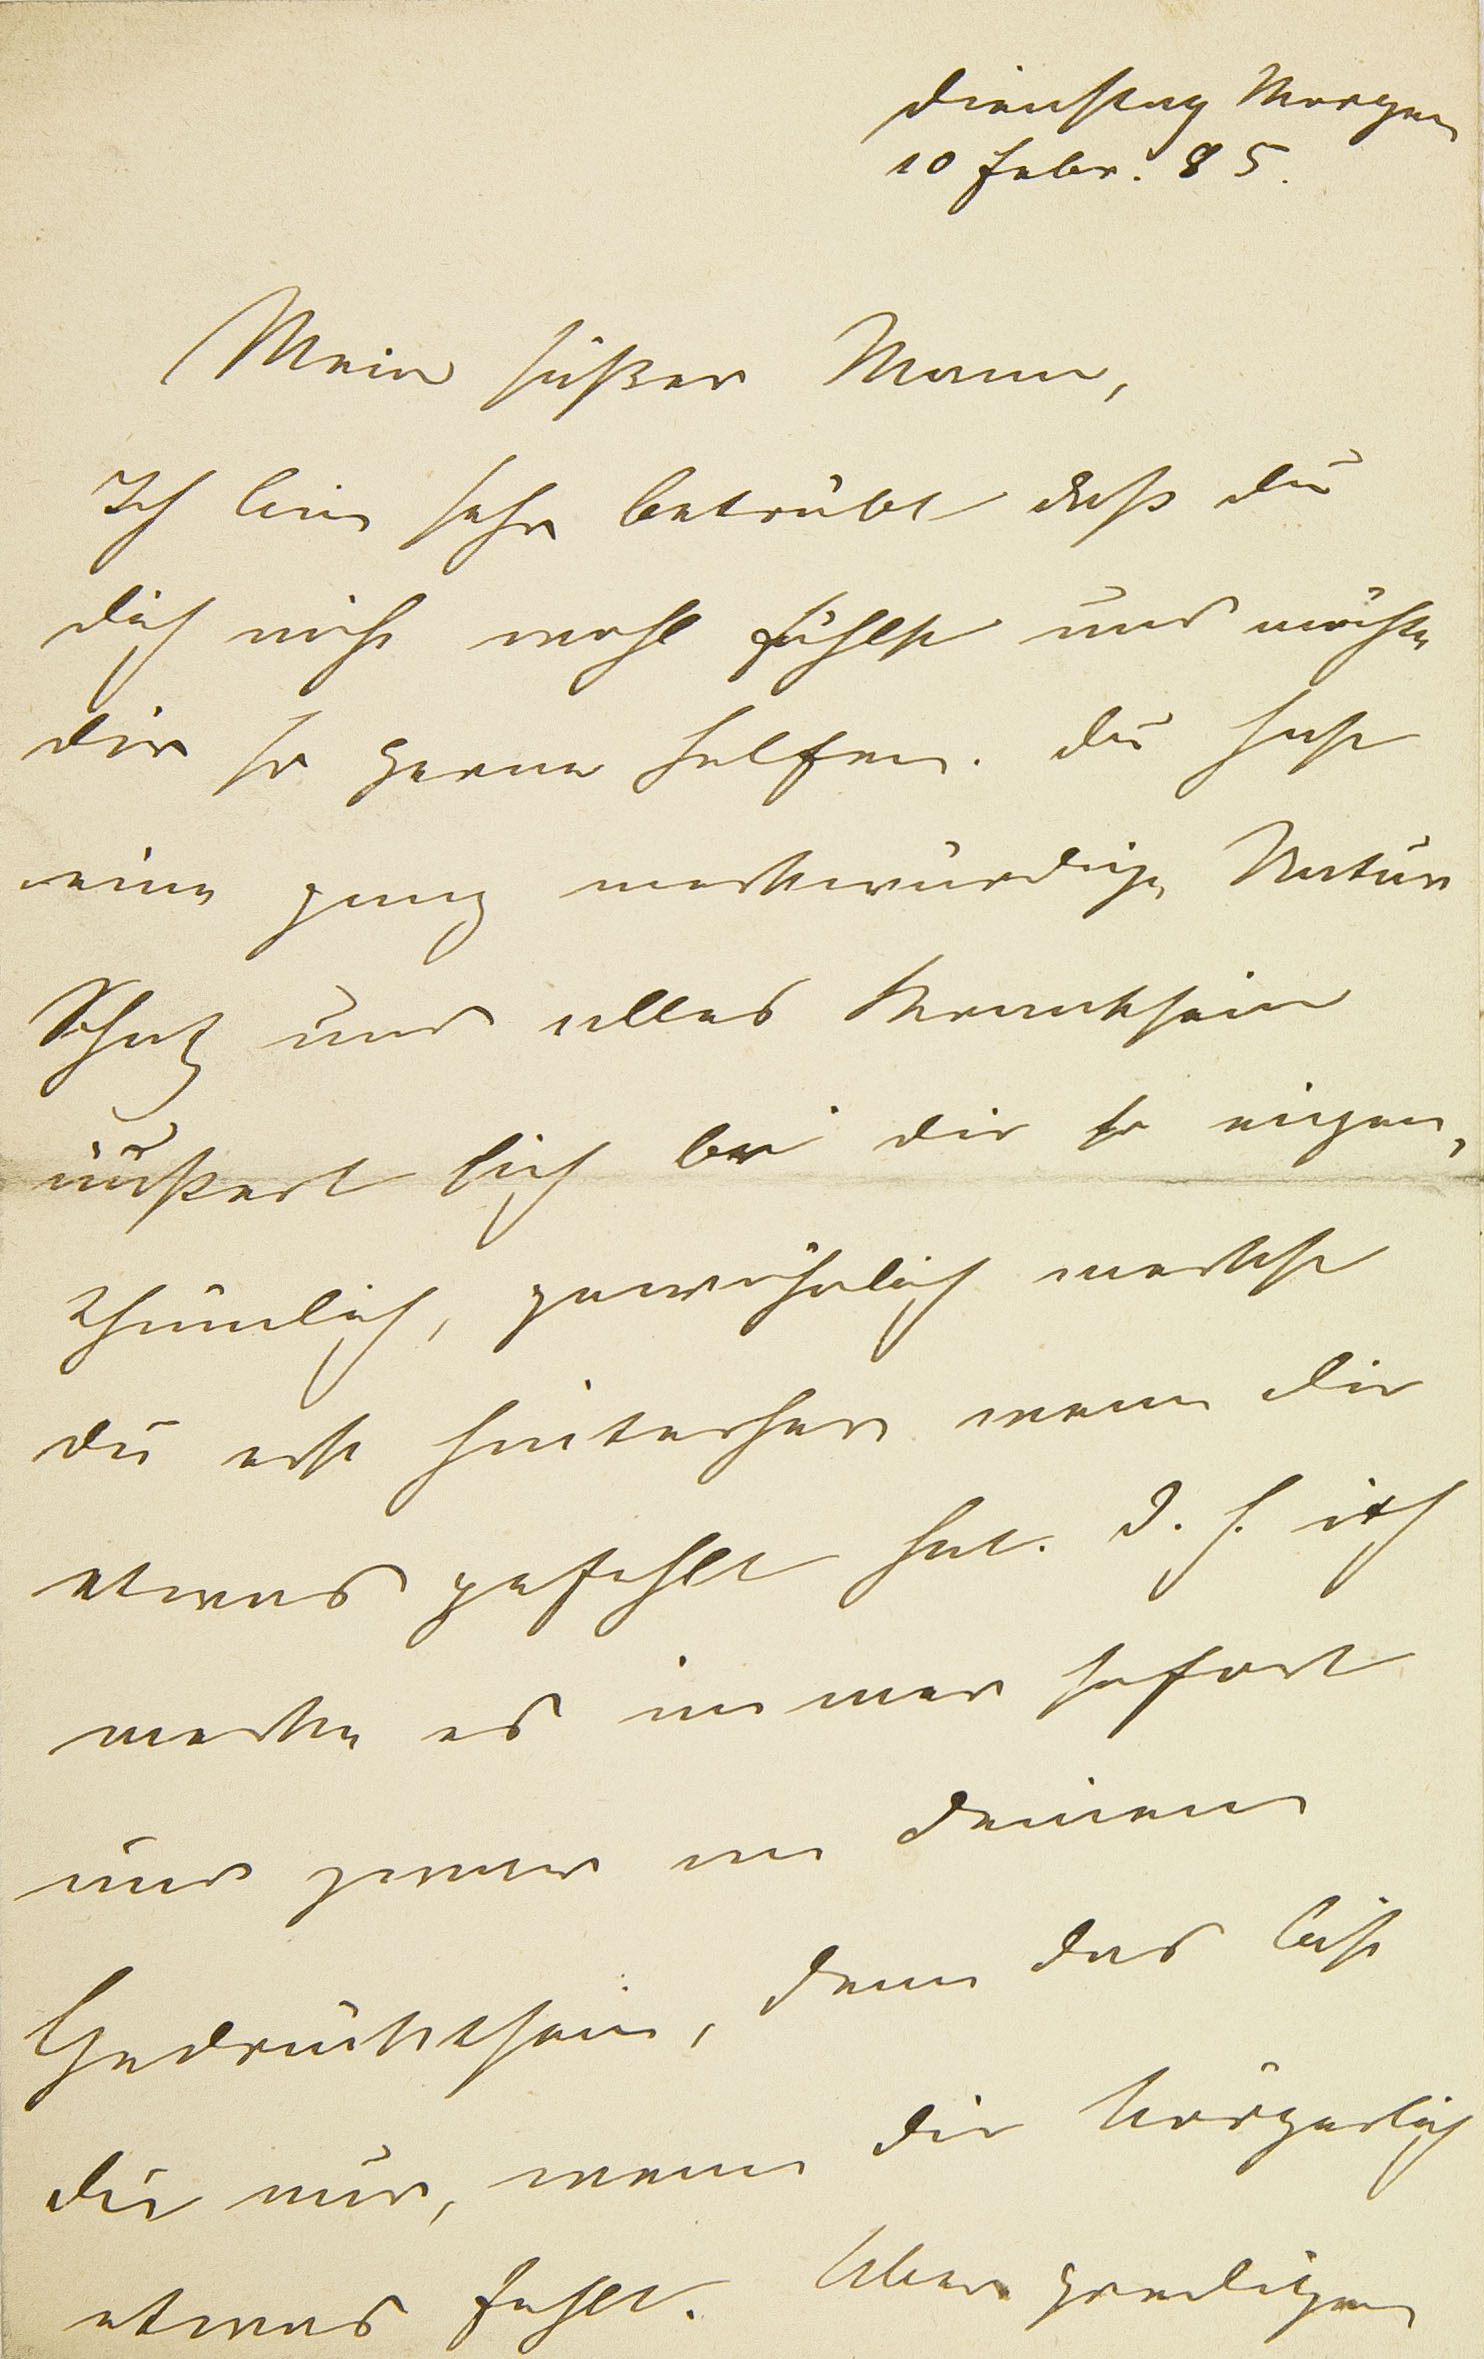 Dienstag Morgen
10 Febr. 85.
Mein süßer Mann,
Ich bin sehr betrübt daß du
dich nicht wohl fühlst und möchte
dir so gerne helfen. Du hast
eine ganz merkwürdige Natur
Schatz und alles Kranksein
äußert sich bei dir so eigen,
thümlich, gewöhnlich merkst
du erst hinterher wenn dir
etwas gefehlt hat. D. h. ich
merke es immer sofort
und zwar an deinem
Gedrücktsein, denn das bist
du nur, wenn dir körperlich
etwas fehlt. Aber predigen